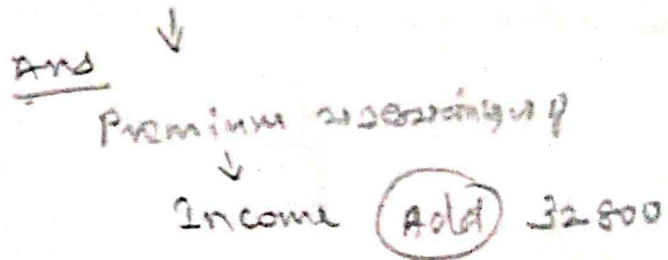 ↓
Ans
Premium
↓
Income Add 32800